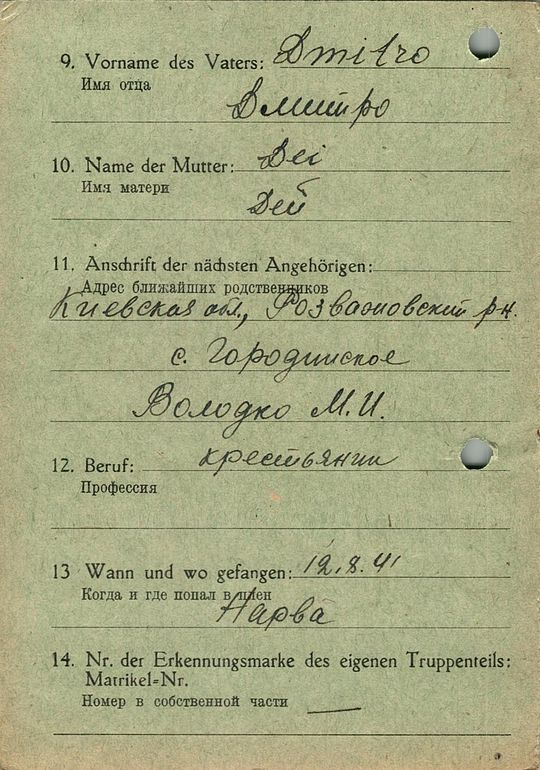 9. Vorname des Vaters: Dmitro
Имя отца
Дмитро
10. Name der Mutter: Dei
Имя матери
Дей
11. Anschrift der nächsten Angehörigen:
Адрес ближайших родственников
Киевская обл., Розважовский р-н.
с. Городинское
Володко М.И.
12. Beruf: крестьянин
Профессия
13 Wann und wo gefangen: 12.8.41
Когда и где попал в плен
Нарва
14. Nr. der Erkennungsmarke des eigenen Truppenteils:
Matrikel-Nr.
Номер в собственной части —